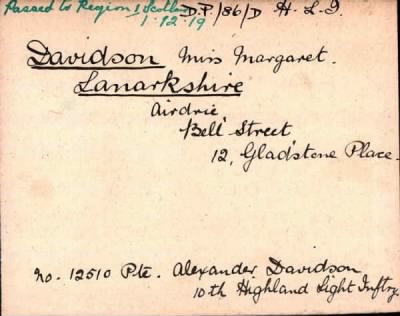 Passed to Region 1 Scotland D.P./86/D H.L.I.
1.12.19
Davidson Miss Margaret.
Lanarkshire
Airdrie
Bell Street
12, Gladstone Place.
No. 12510 Pte. Alexander Davidson
10th Highland Light Inftry.